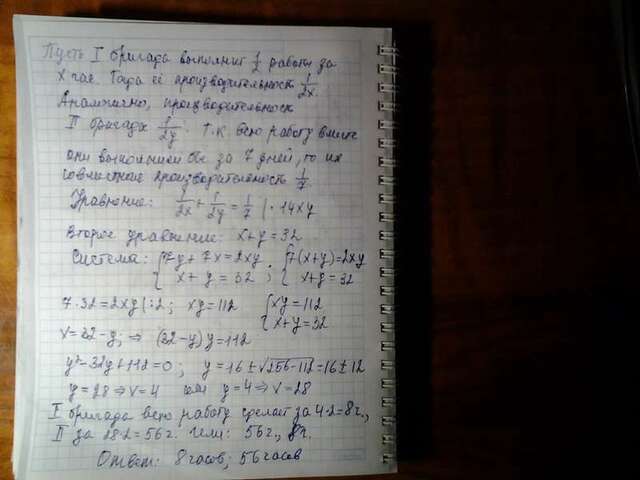 Пусть I бригада выполнит 1/2 работы за
x час. Тогда её производительность 1/2x.
Аналогично, производительность
II бригады 1/2y. Т.к. всю работу вместе
они выполнили бы за 7 дней, то их
совместная производительность 1/7.
Уравнение: 1/2x + 1/2y = 1/7 | · 14xy
Второе уравнение: x+y = 32
Система: { 7y + 7x = 2xy ; { 7(x+y) = 2xy
x + y = 32 ; x+y = 32
7·32 = 2xy | :2 ; xy = 112 { xy = 112
x+y = 32
x = 32-y; ⇒ (32-y)y = 112
y²-32y+112 = 0 ; y = 16 ± √256-112 = 16 ± 12
y = 28 ⇒ x = 4 или y = 4 ⇒ x = 28
I бригада всю работу сделает за 4·2 = 8 г.,
II за 28·2 = 56 г. Или: 56 г., 8 г.
Ответ: 8 часов; 56 часов